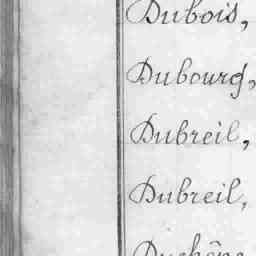 Dubois,
Dubourg,
Dubreil,
Dubreil,
Duchêne